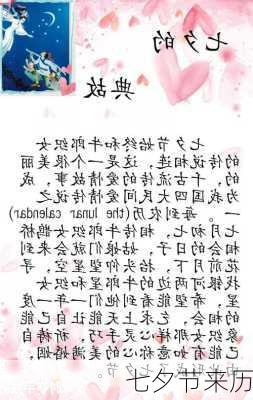 七夕的
典故
七夕节始终和牛郎织女
的传说相连，这是一个很美丽
的，千古流传的爱情故事，成
为我国四大民间爱情传说之
一。每到农历(the lunar calendar)
七月初七，相传牛郎织女鹊桥
相会的日子，姑娘们就会来到
花前月下，抬头仰望星空，寻
找银河两边的牛郎星和织女
星，希望能看到他们一年一度
的相会，乞求上天能让自己能
象织女那样心灵手巧，祈祷自
己能有如意称心的美满婚姻，
七夕节。
七夕节来历